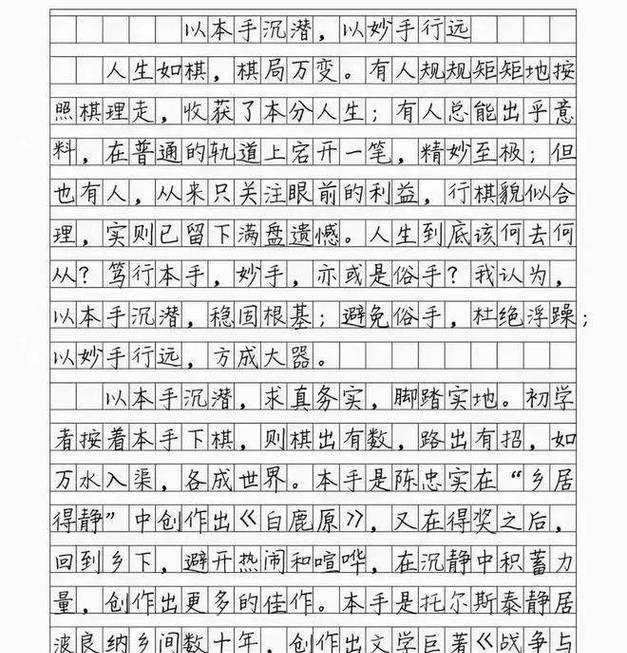 以本手沉潜，以妙手行远
人生如棋，棋局万变。有人规规矩矩地按
照棋理走，收获了本分人生；有人总能出乎意
料，在普通的轨道上宕开一笔，精妙至极；但
也有人，从来只关注眼前的利益，行棋貌似合
理，实则已留下满盘遗憾。人生到底该何去何
从？笃行本手，妙手，亦或是俗手？我认为，
以本手沉潜，稳固根基；避免俗手，杜绝浮躁；
以妙手行远，方成大器。
以本手沉潜，求真务实，脚踏实地。初学
者按着本手下棋，则棋出有数，路出有招，如
万水入渠，各成世界。本手是陈忠实在“乡居
得静”中创作出《白鹿原》，又在得奖之后，
回到乡下，避开热闹和喧哗，在沉静中积蓄力
量，创作出更多的佳作。本手是托尔斯泰静居
波良纳乡间数十年，创作出文学巨著《战争与